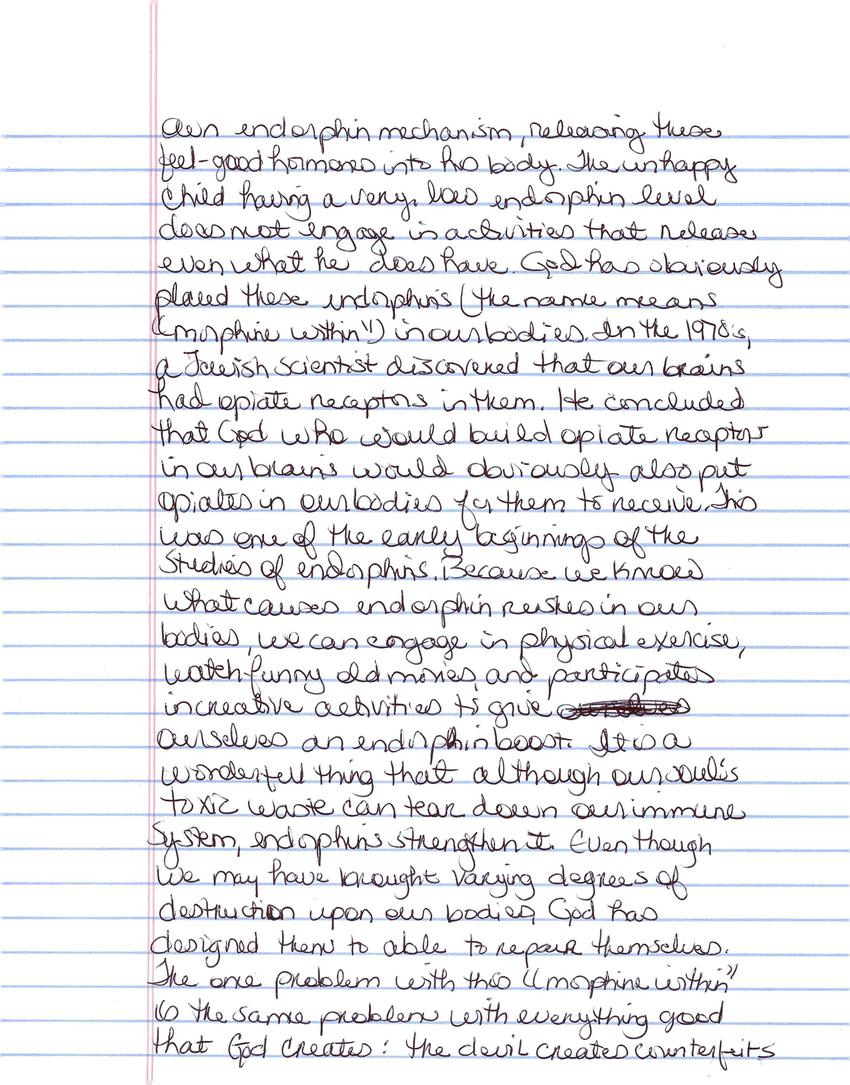 own endorphin mechanism, releasing these
feel-good hormones into his body. The unhappy
child having a very, low endorphin level
does not engage in activities that release
even what he does have. God has obviously
placed these endorphins (the name means
"morphine within") in our bodies. In the 1970's,
a Jewish scientist discovered that our brains
had opiate receptors in them. He concluded
that God who would build opiate receptors
in our brains would obviously also put
opiates in our bodies for them to receive. This
was one of the early beginnings of the
studies of endorphins. Because we know
what causes endorphin rushes in our
bodies, we can engage in physical exercise,
watch funny old movies, and participates
in creative activities to give
ourselves an endorphin boost. It is a
wonderful thing that although our soul's
toxic waste can tear down our immune
system, endorphins strengthen it. Even though
we may have brought varying degrees of
destruction upon our bodies, God has
designed them to able to repair themselves.
The one problem with this "morphine within"
is the same problem with everything good
that God creates: the devil creates counterfeits